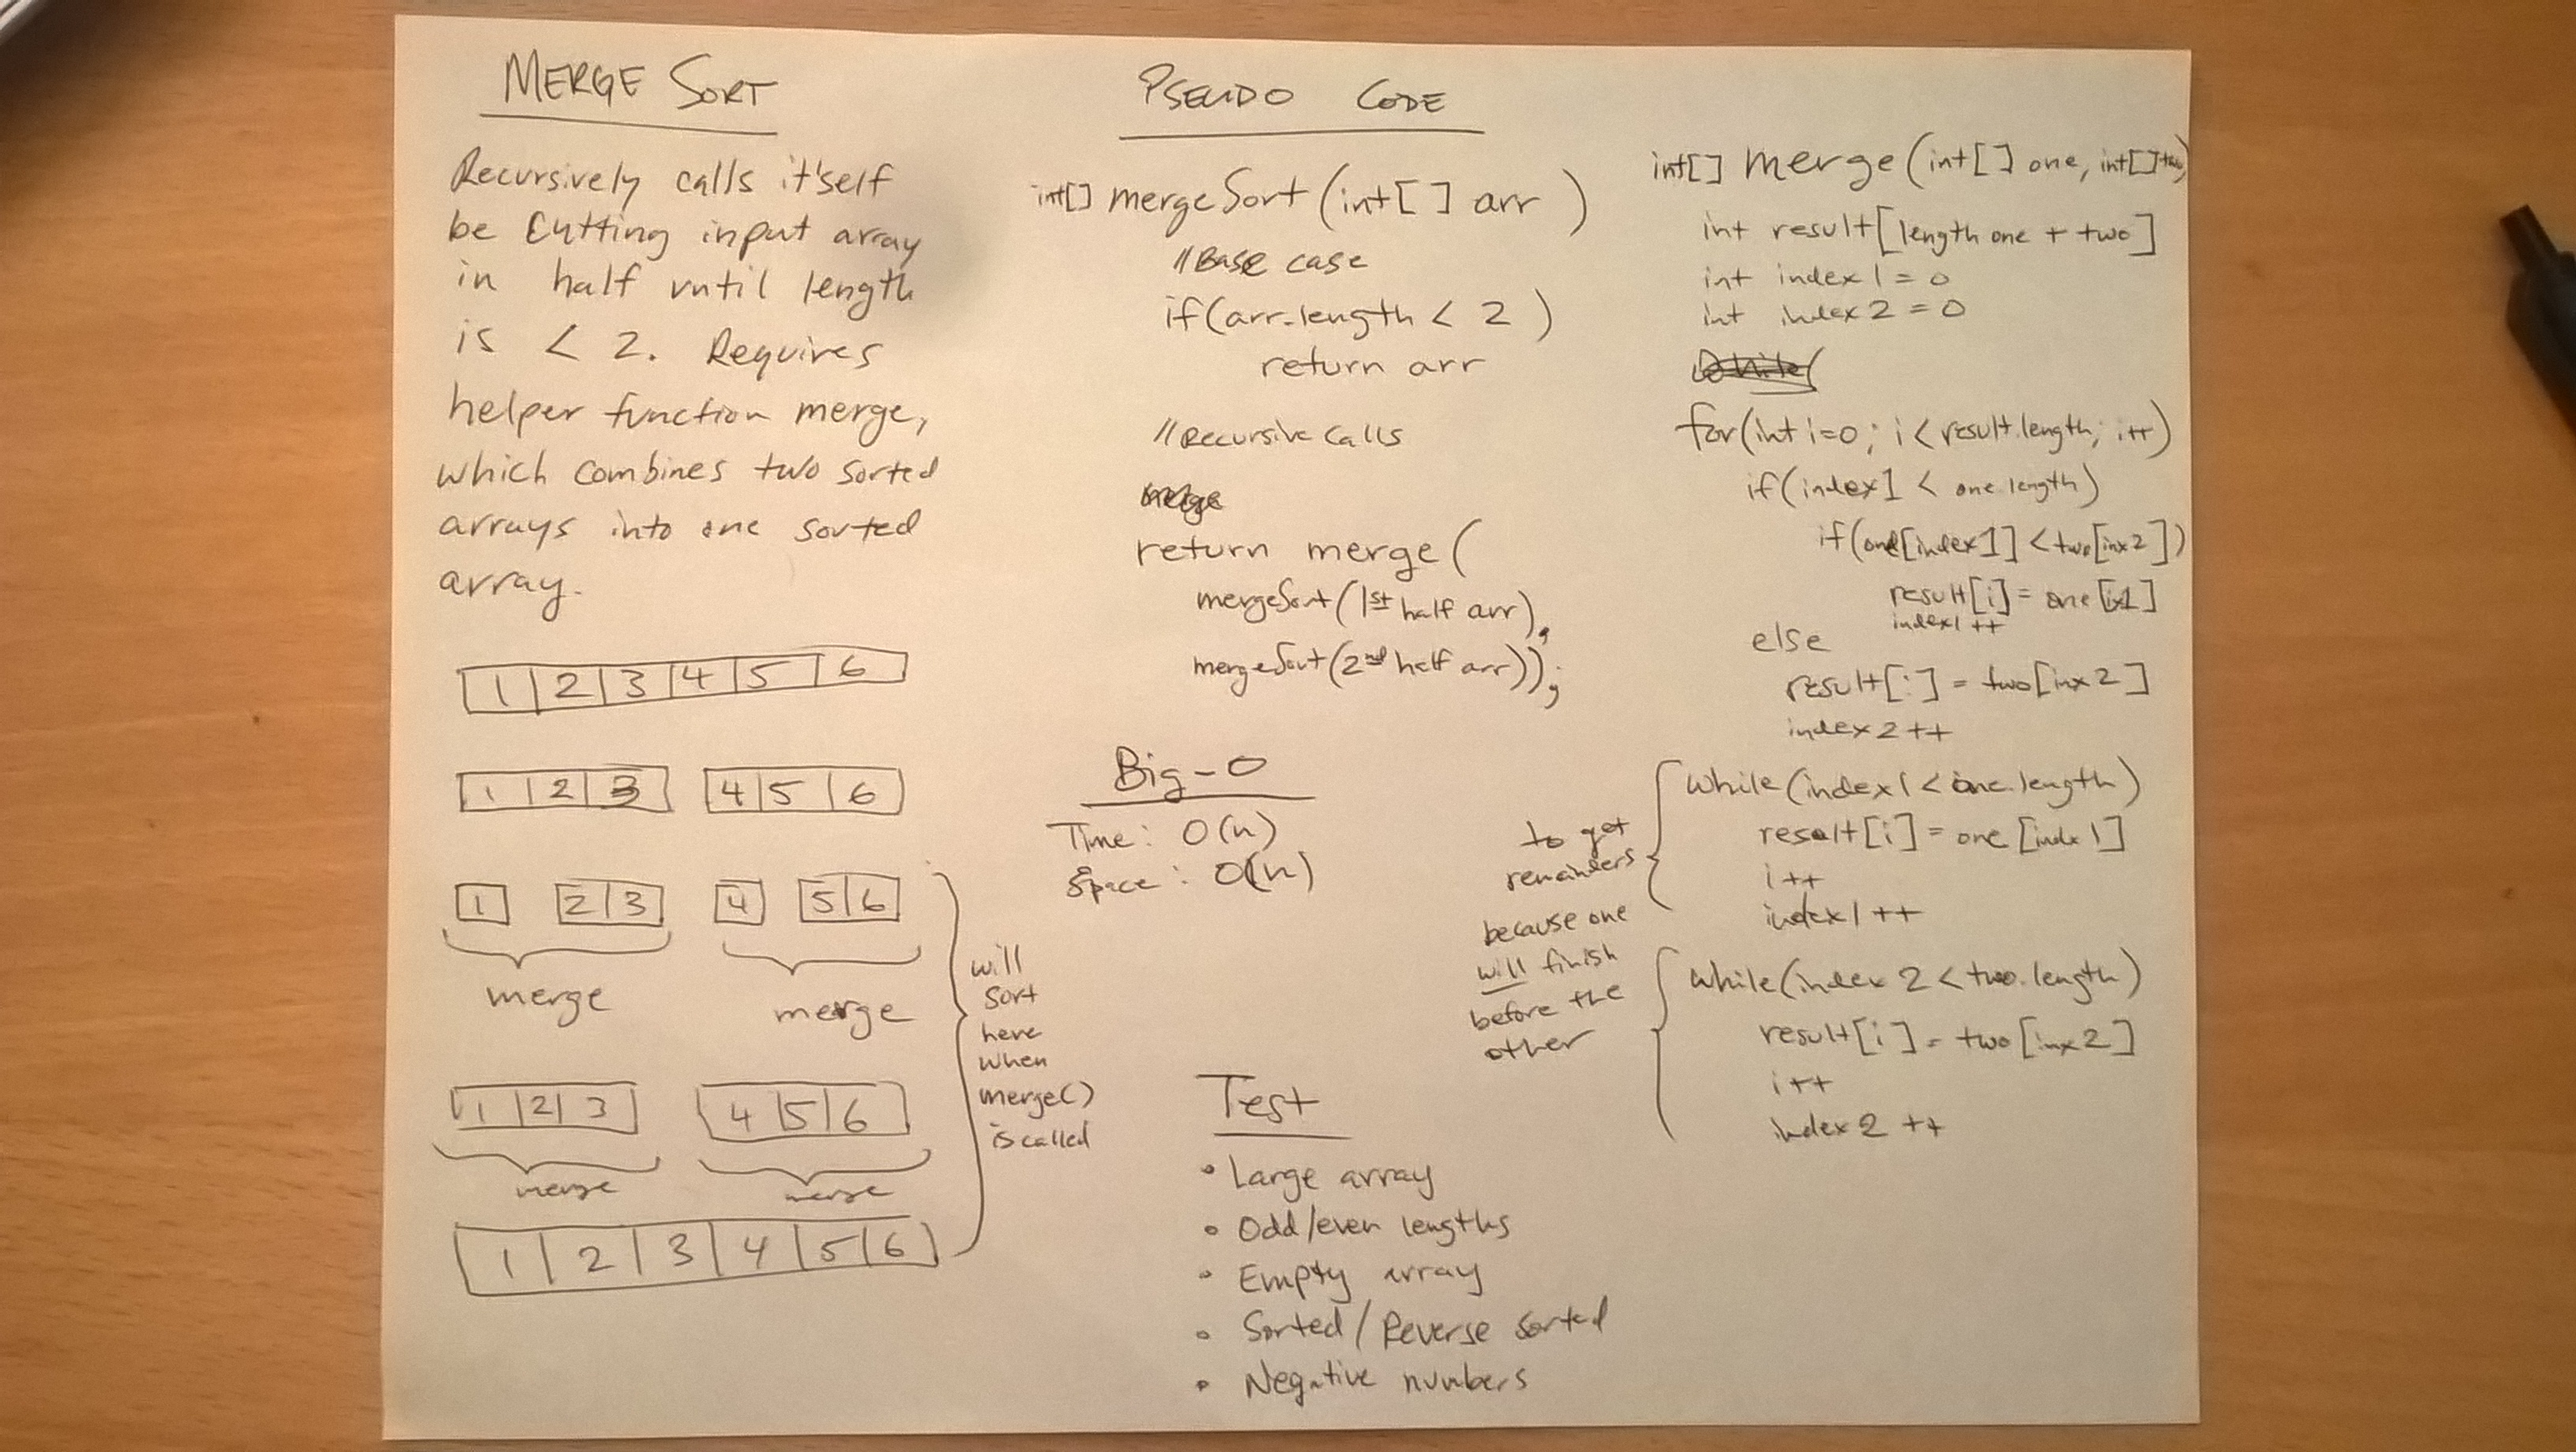 MERGE SORT
Recursively calls it'self
be Cutting input array
in half until length
is < 2. Requires
helper function merge,
which combines two sorted
arrays into one sorted
array.
1 2 3 4 5 6
1 2 3 4 5 6
1 2 3 4 5 6
merge merge
1 2 3 4 5 6
merge merge
1 2 3 4 5 6
will
sort
here
when
merge()
is called
PSEUDO CODE
int[] mergeSort(int[] arr)
//Base case
if(arr.length < 2)
return arr
//Recursive Calls
merge
return merge(
mergeSort(1st half arr),
mergeSort(2nd half arr));
Big-O
Time: O(n)
Space: O(n)
Test
• Large array
• Odd/even lengths
• Empty array
• Sorted/Reverse sorted
• Negative numbers
int[] merge(int[] one, int[] two)
int result[length one + two]
int index1 = 0
int index2 = 0
while(
for(int i=0; i<result.length; i++)
if(index1 < one.length)
if(one[index1] < two[inx2])
result[i] = one[ix1]
index1++
else
result[i] = two[inx2]
index2++
while(index1 < one.length)
result[i] = one[index1]
i++
index1++
while(index2 < two.length)
result[i] = two[inx2]
i++
index2++
to get
remainders
because one
will finish
before the
other